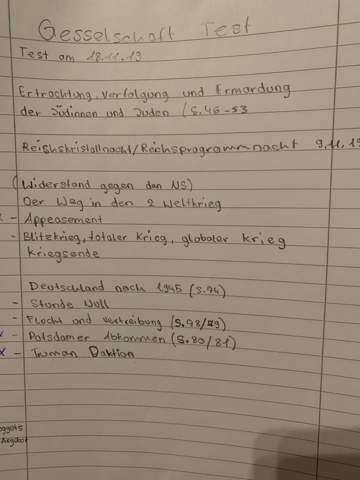 Gesselschaft Test
Test am 18.11.19
Ertrachtung, Verfolgung und Ermordung
der Jüdinnen und Juden (S.46-53
Reishskristallnacht/Reichsprogrammnacht 9.11.19
(Widerstand gegen den NS)
Der Weg in den 2 Weltkrieg
- Appeasement
- Blitzkrieg, totaler Krieg, globaler Krieg
Kriegsende
Deutschland nach 1945 (S.74)
- Stunde Null
- Flucht und vertreibung (S.78/79)
x - Potsdamer Abkommen (S.80/81)
x - Truman Doktion